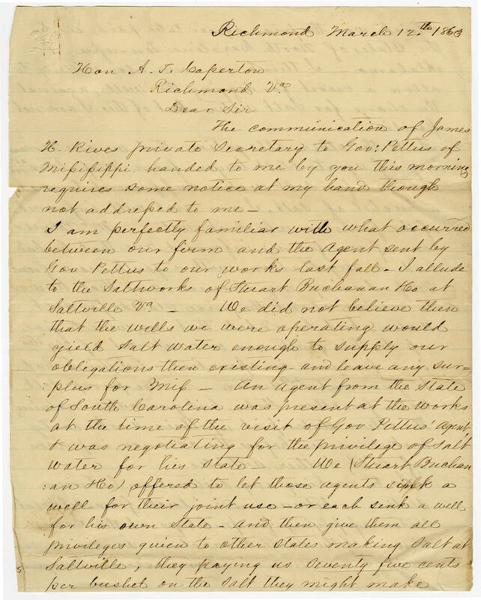 Richmond March 12th 1863
Hon A. T. Caperton
Richmond Va
Dear Sir
The communication of James
H. Rives private Secretary to Gov: Pettus of
Mississippi handed to me by you this morning
requires some notice at my hand though
not addressed to me —
I am perfectly familiar with what occurred
between our firm and the Agent sent by
Gov Pettus to our works last fall — I allude
to the Saltworks of Stuart Buchanan Co at
Saltville Va — We did not believe then
that the wells we were operating would
yield Salt water enough to supply our
obligations then existing and leave any sur-
plus for Miss — An Agent from the State
of South Carolina was present at the works
at the time of the visit of Gov Pettus' Agent
& was negotiating for the privilege of Salt
Water for his State We (Stuart Buchan
:an Co) offered to let those agents sink a
well for their joint use — or each sink a well
for his own State — and then give them all
privileges given to other States making Salt at
Saltville, they paying us Seventy five cents
per bushel on the Salt they might make